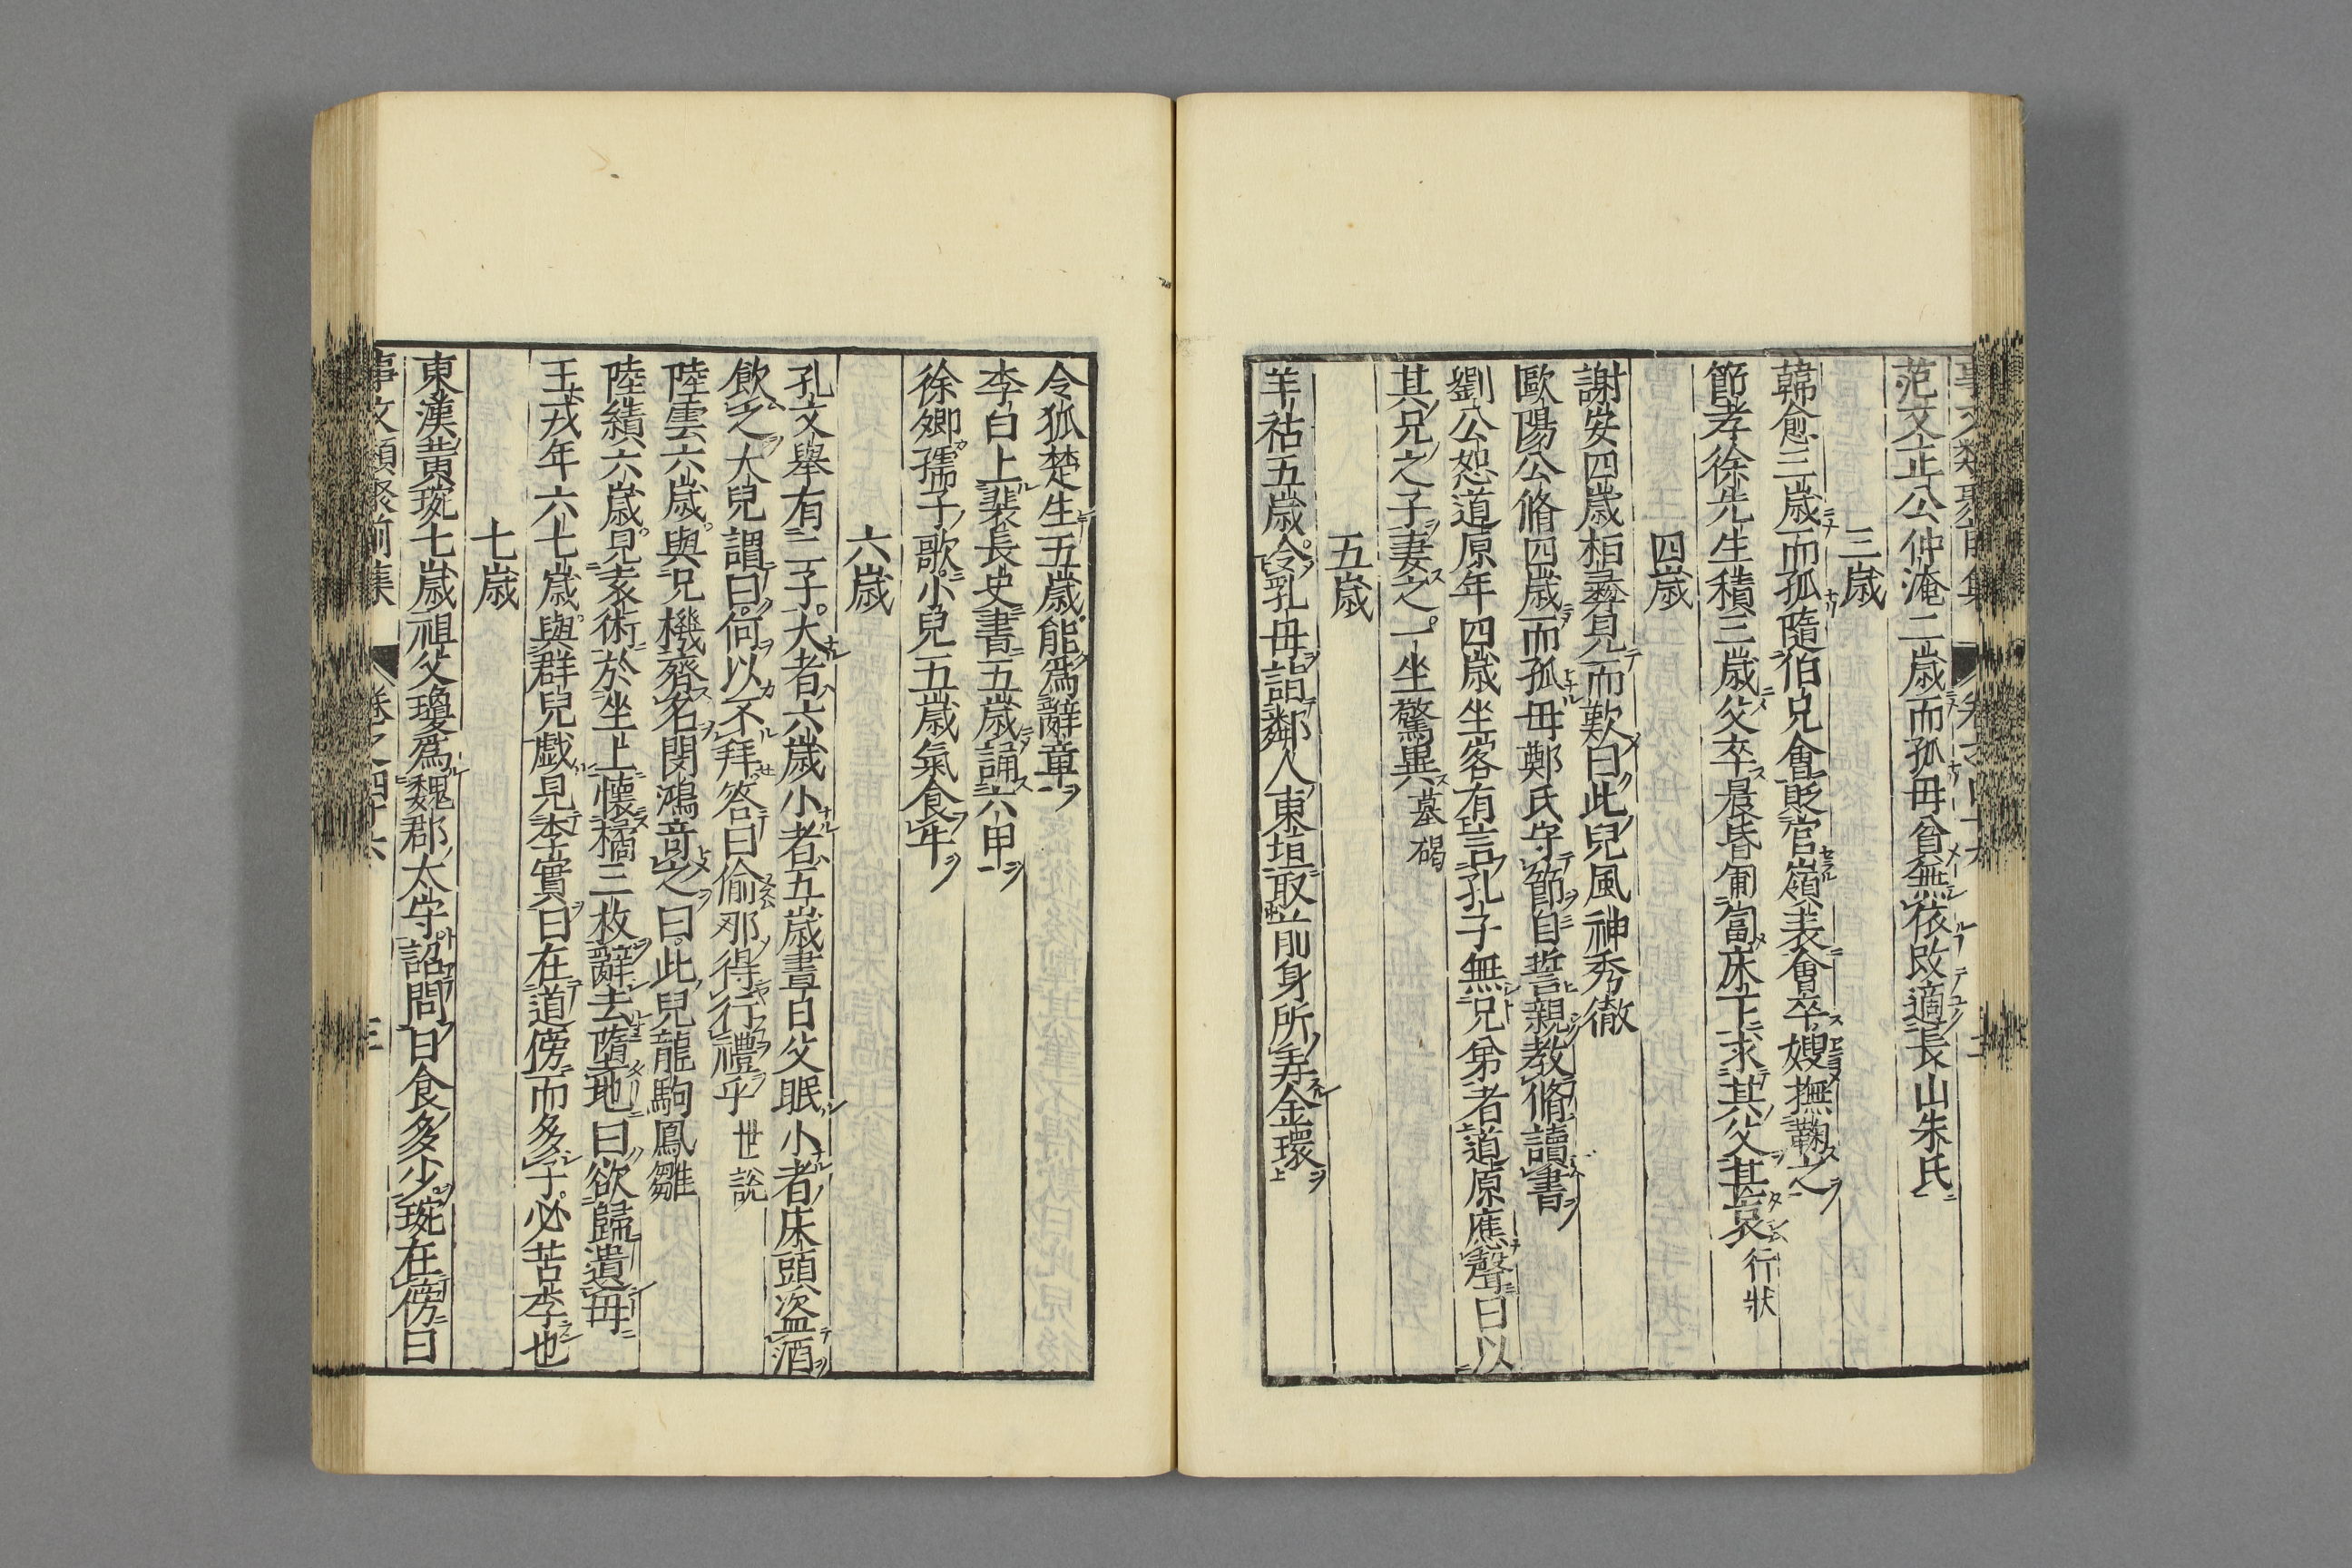 范文正公仲淹二歲而孤母貧無依改適長山朱氏
三歲
韓愈三歲而孤隨伯兄會貶官嶺表會卒嫂撫鞠之
節孝徐先生積三歲父卒晨昏匍匐床下求其父甚哀行狀
四歲
謝安四歲桓彝見而歎曰此兒風神秀徹
歐陽公脩四歲而孤母鄭氏守節自誓親教脩讀書
劉公恕道原年四歲坐客有言孔子無兄弟者道原應聲曰以
其兄之子妻之一坐驚異墓碣
五歲
羊祜五歲令乳母詣鄰人東垣取前身所弄金環
令狐楚生五歲能爲辭章
李白上裴長史書五歲誦六甲
徐卿孺子歌小兒五歲氣食牛
六歲
孔文舉有二子大者六歲小者五歲晝日父眠小者床頭盜酒
飲之大兒謂曰何以不拜答曰偷那得行禮乎世說
陸雲六歲與兄機齊名閔鴻竒之曰此兒龍駒鳳雛
陸績六歲見袁術於坐上懷橘三枚辭去墮地曰欲歸遺母
王戎年六七歲與群兒戲見李實曰在道傍而多子必苦李也
七歲
東漢黃琬七歲祖父瓊爲魏郡太守詔問日食多少琬在傍曰
事文類聚前集 卷之四十六 三